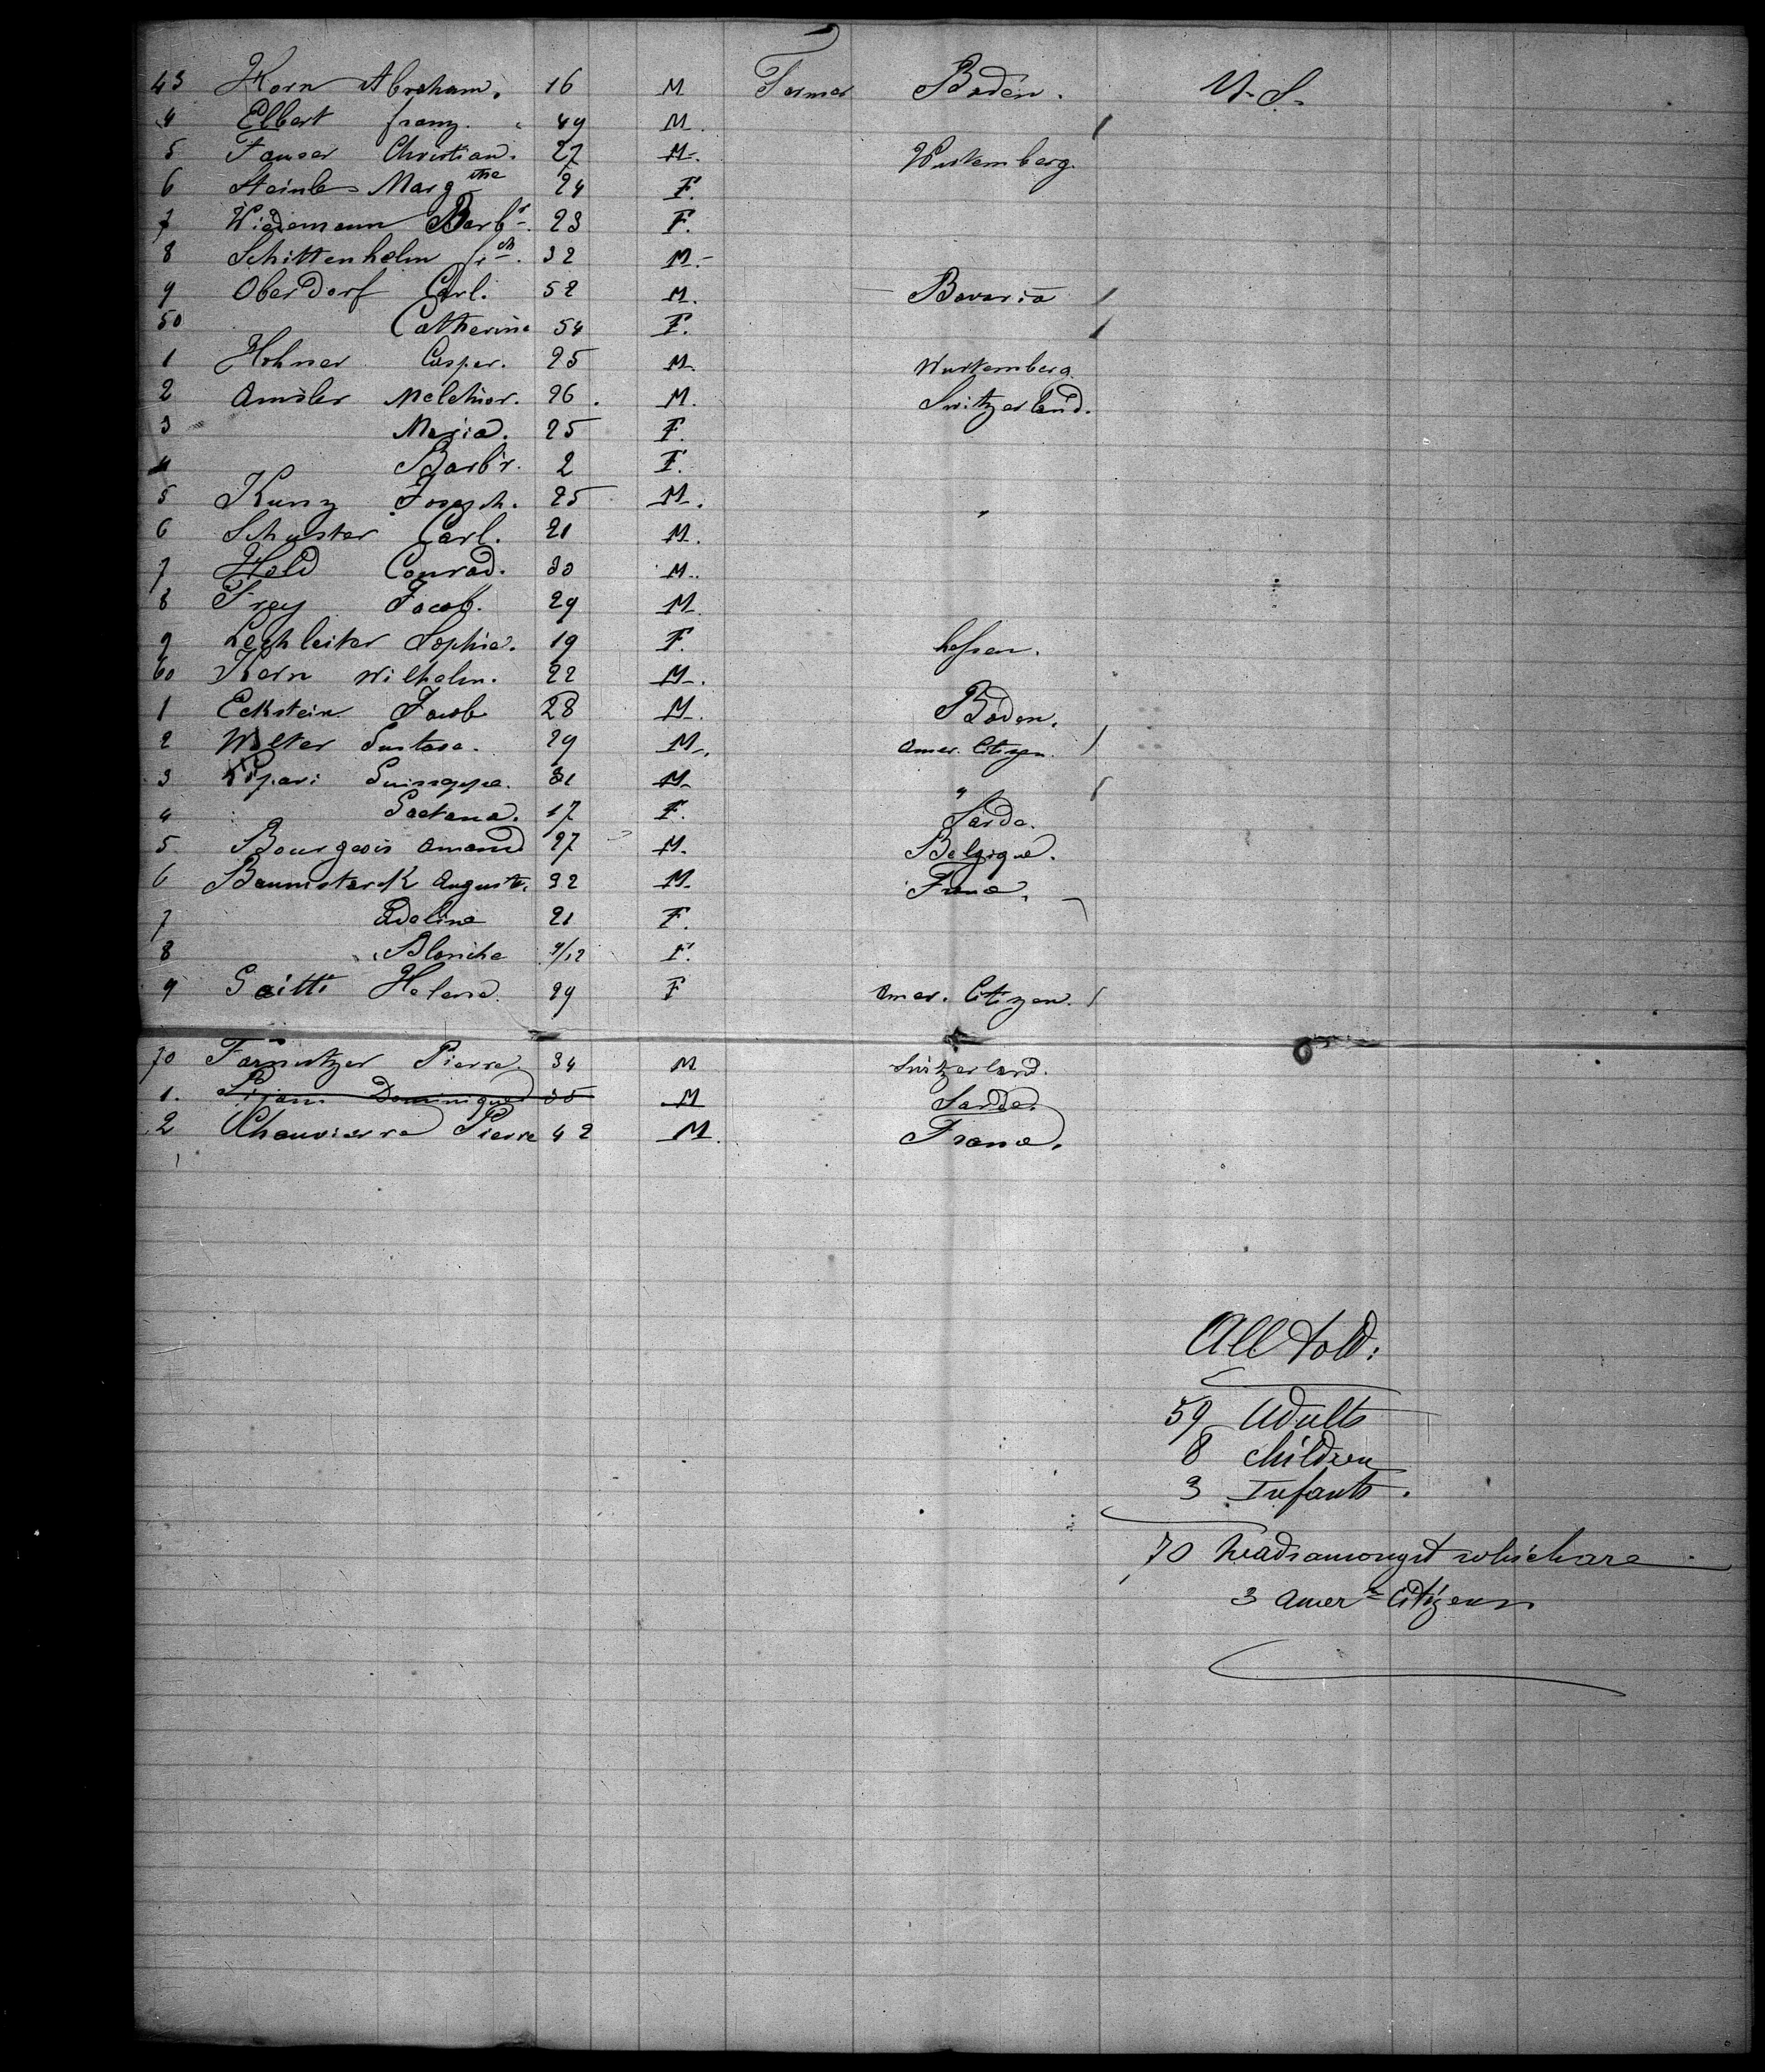 43 Korn Abraham. 16 M Farmer Baden. U. S.
4 Elbert franz. 49 M.
5 Fauser Christian. 27 M. Wurtemberg.
6 Steinle Marg the 24 F.
7 Widemann Barb a. 23 F.
8 Schittenhelm fr ch. 32 M.
9 Oberdorf Carl. 52 M. Bavaria
50 Catherine 54 F.
1 Hohner Casper. 25 M. Wurtemberg.
2 Amsler Melchior. 26. M. Switzerland.
3 Maria. 25 F.
4 Barb'r. 2 F.
5 Kunz Joseph. 25 M.
6 Schuster Carl. 21 M.
7 Hold Conrad. 30 M.
8 Frey Jacob. 29 M.
9 Lechleiter Sophie. 19 F. hessen.
60 Kern Wilhelm. 22 M.
1 Eckstein Jacob 28 M. Baden.
2 Walter Gustave. 29 M. Amer. Citizen.
3 Guisseppe. 31 M. "
4 Gaetana. 17 F. Sarde.
5 Bourgeois Amand 27 M. Belgique.
6 Baumstarck Auguste. 32 M. France.
7 Adeline 21 F.
8 Blanche 9/12 F.
9 Gaitti Helene. 29 F Amer. Citizen.
70 Pierre. 34 M Switzerland.
1. Dominique 35 M Sarde.
2 Chauvierre Pierre 42 M. France.
All told:
59 Adults
8 children
3 Infants.
70 heads amongst which are
3 Amer n Citizens